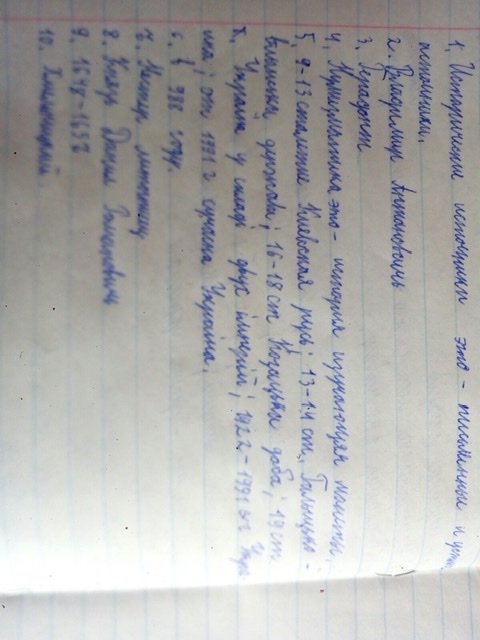 1. Исторические источники это - письменные и устные
источники.
2. Владимир Антонович
3. Геродот
4. Нумизматика это - история изучающая монеты.
5. 9-13 столетие Киевская русь; 13-14 ст. Галицько -
Волинська держава; 16-18 ст Козацька доба; 19 ст
Х Украина у складі двух імперій; 1922-1991 г Укра
на; от 1991 г сучасна Україна.
6. В 988 году.
7. Нестор летописец
8. Князь Данило
9. 1648-1657
10.